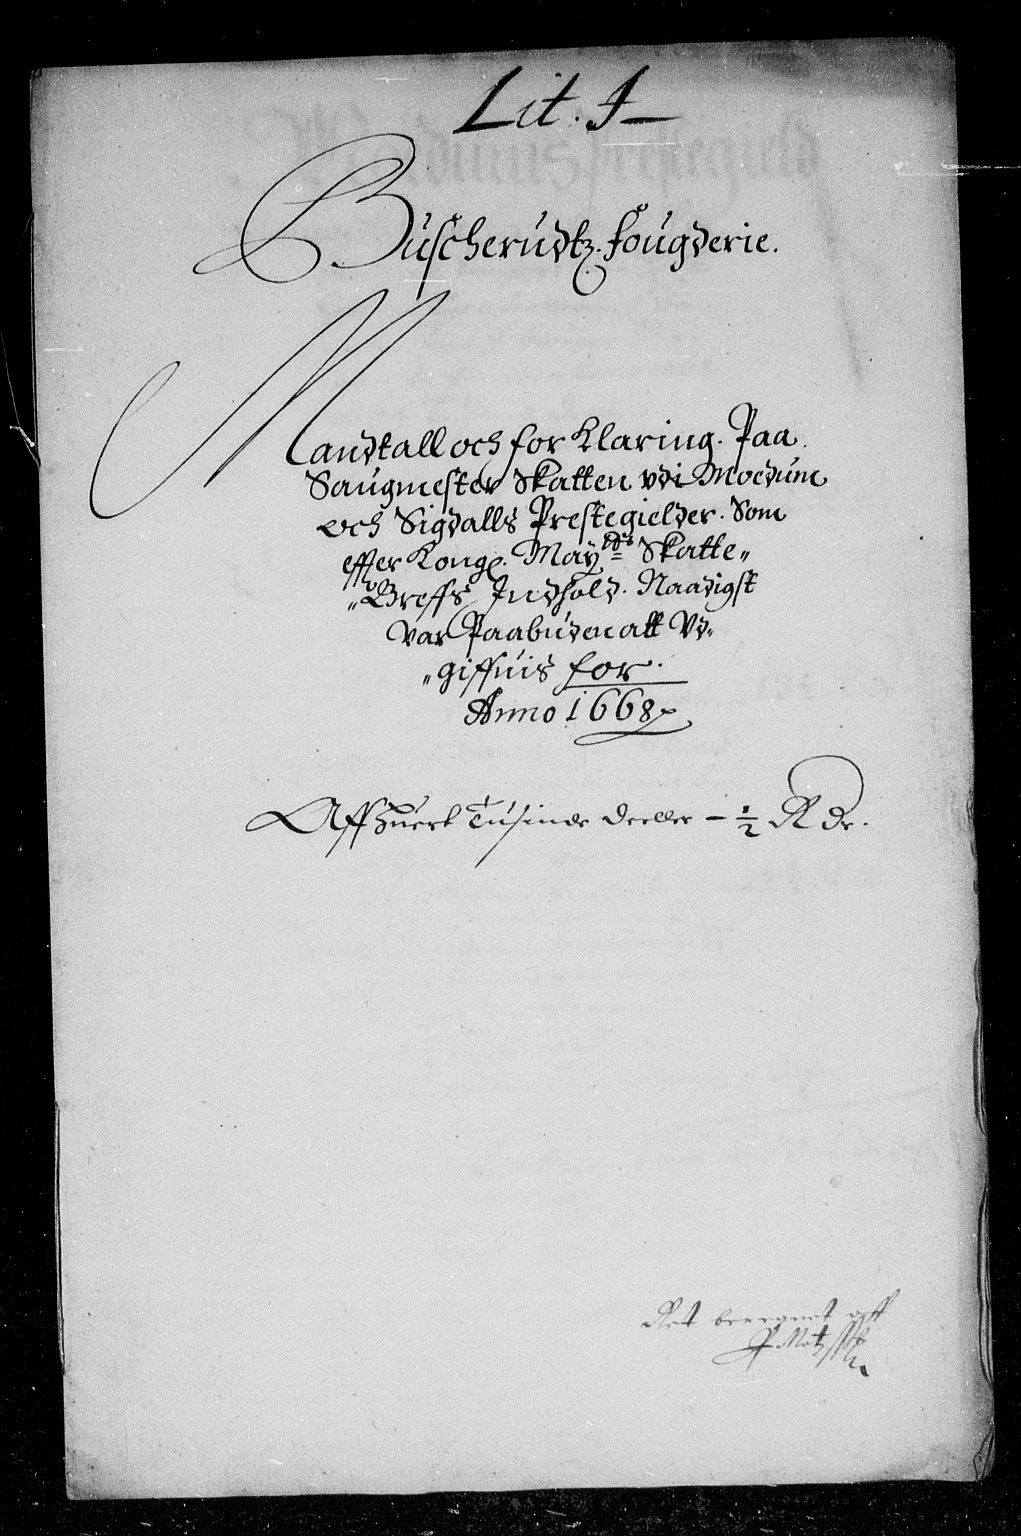 Lit. I
Buscherudtz. fougderie.
Mandtall och for Klaring. Paa
Saugmester Skatten vdi Moedum
och Sigdalls Prestegielder. Som
effter Kongl. May:tts Skatte„
„Breffs Indhold. Naadigst
var Paabuden att Vd„
„giffuis for.
Anno 1668
Aff huert Tusinde deeller – ½ R dr.
Ret beregnet aff
P Motzfeldt